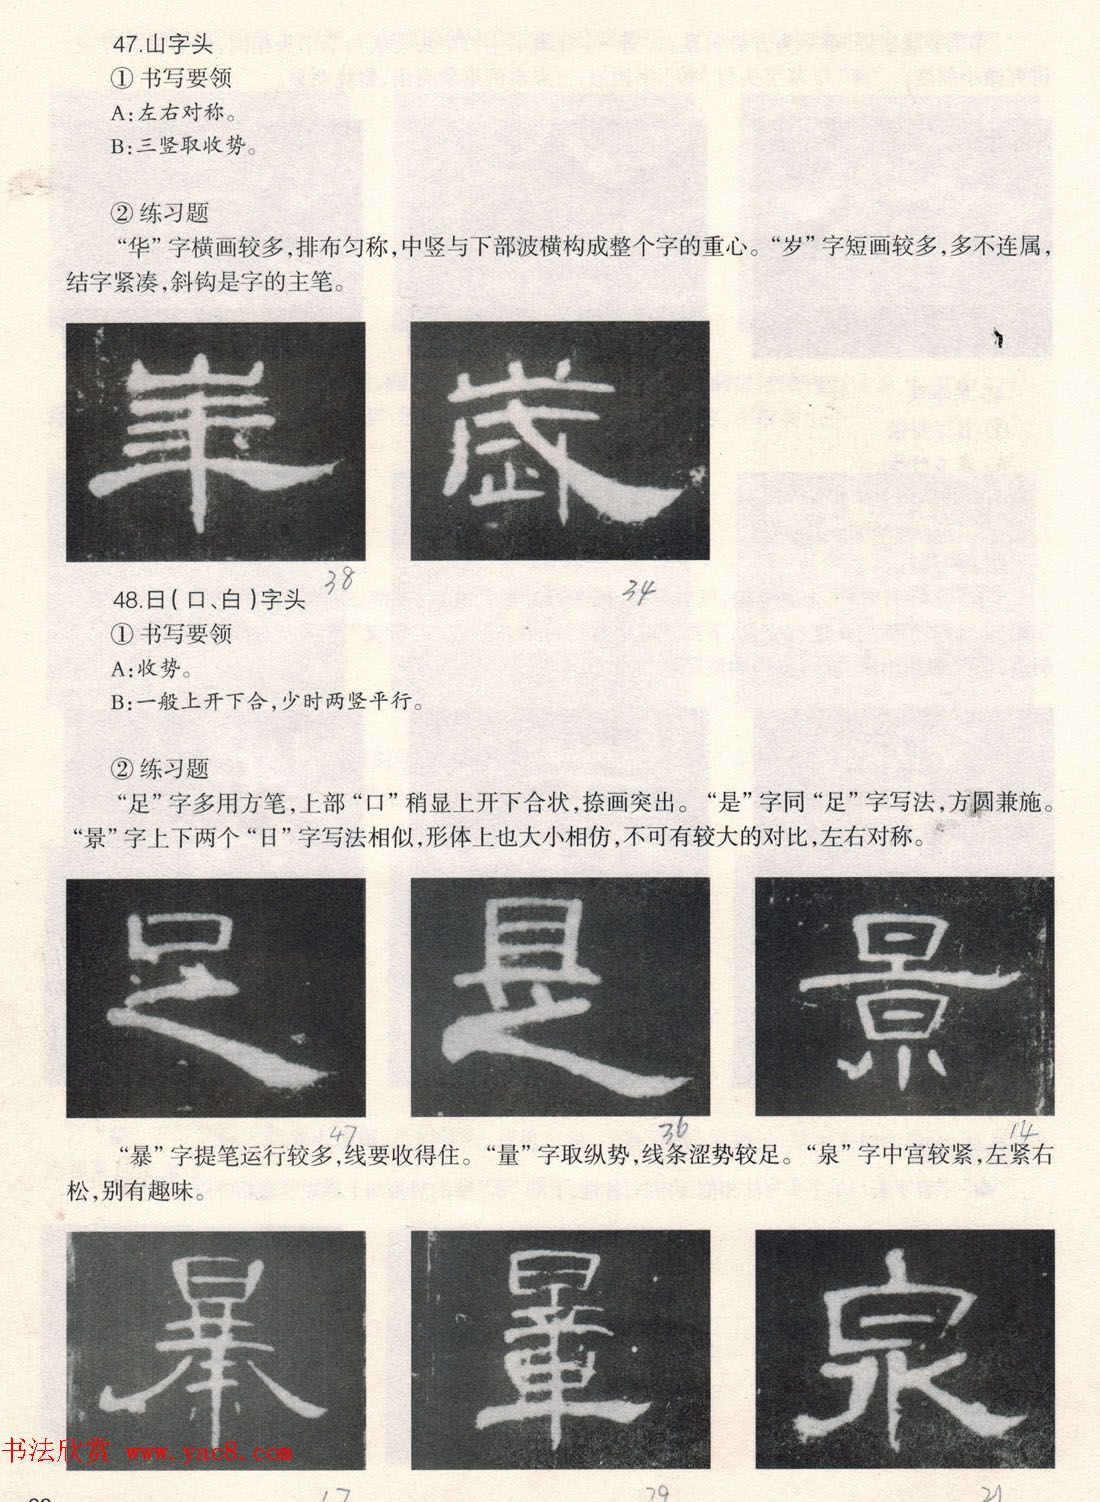 47.山字头
① 书写要领
A:左右对称。
B:三竖取收势。
② 练习题
“华”字横画较多,排布匀称,中竖与下部波横构成整个字的重心。“岁”字短画较多,多不连属,
结字紧凑,斜钩是字的主笔。
華 歲
38 34
48.日(口、白)字头
① 书写要领
A:收势。
B:一般上开下合,少时两竖平行。
② 练习题
“足”字多用方笔,上部“口”稍显上开下合状,捺画突出。“是”字同“足”字写法,方圆兼施。
“景”字上下两个“日”字写法相似,形体上也大小相仿,不可有较大的对比,左右对称。
足 是 景
47 36 14
“暴”字提笔运行较多,线要收得住。“量”字取纵势,线条涩势较足。“泉”字中宫较紧,左紧右
松,别有趣味。
暴 量 泉
书法欣赏 www.yac8.com
17 29 21